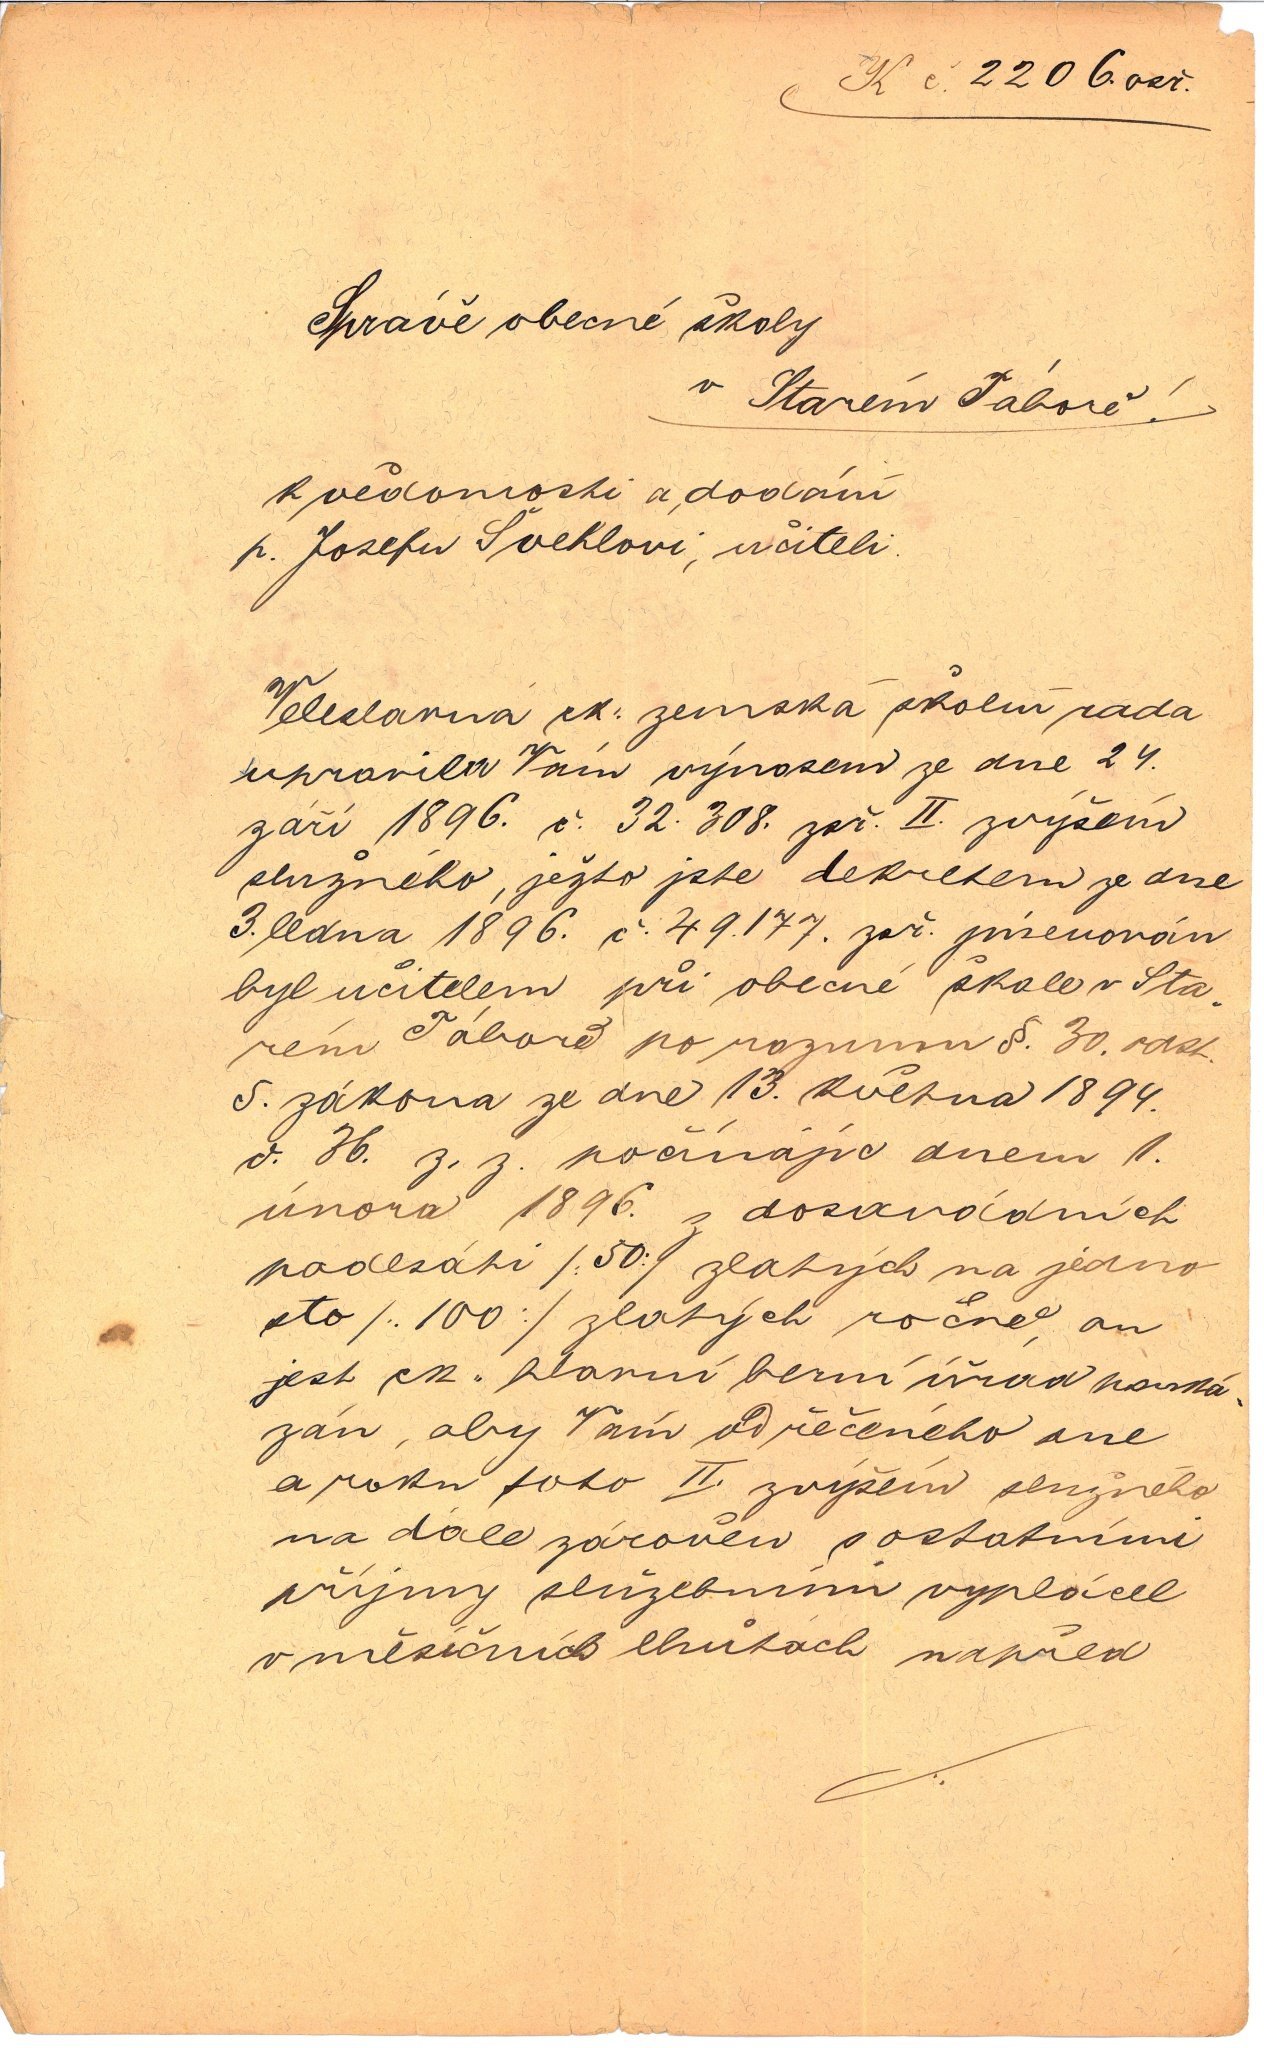 K č. 2206. osř.
Správě obecné školy
v Starém Táboře!
k vědomosti a dodání
p. Josefu Švehlovi, učiteli.
Veleslavná ck. zemská školní rada
upravila Vám výnosem ze dne 24.
září 1896. č. 32.308. zsř. II. zvýšení
služného, ježto jste dekretem ze dne
3. ledna 1896. č. 49.177. zsř. jmenován
byl učitelem při obecné škole v Sta-
rém Táboře po rozumu §. 30. odst.
5. zákona ze dne 13. května 1894.
č. 36. z. z. počínajíc dnem 1.
února 1896. z dosavádních
padesáti /:50:/ zlatých na jedno
sto /:100:/ zlatých ročně, an
jest ck. hlavní berní úřad pouká-
zán, aby Vám od řečeného dne
a roku toto II. zvýšení služného
na dále zároveň s ostatními
příjmy služebními vyplácel
v měsíčních lhůtách napřed